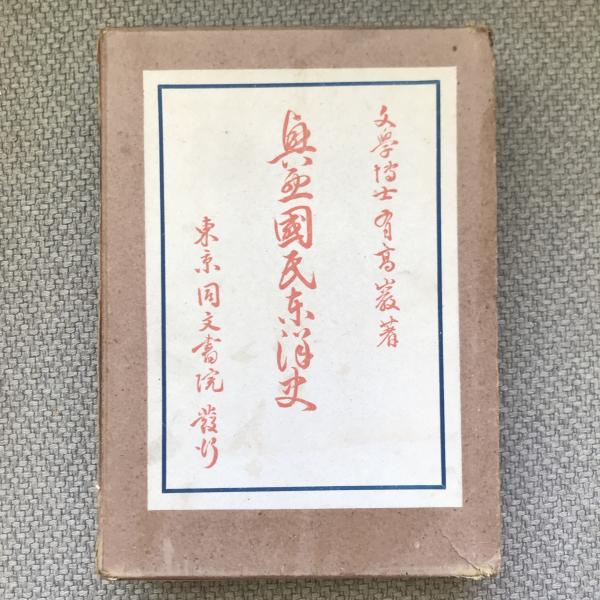 文學博士 有高巖著
興亜國民東洋史
東京 同文書院 發行